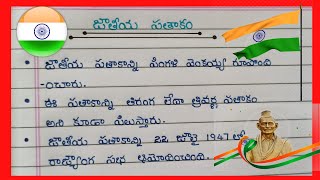 జాతీయ పతాకం
• జాతీయ పతాకాన్ని పింగళి వెంకయ్య రూపొంది
-ంచారు.
• ఈ పతాకాన్ని తిరంగ లేదా త్రివర్ణ పతాకం
అని కూడా పిలుస్తారు.
• జాతీయ పతాకాన్ని 22 జూలై 1947 లో
రాజ్యాంగ సభ ఆమోదించింది.